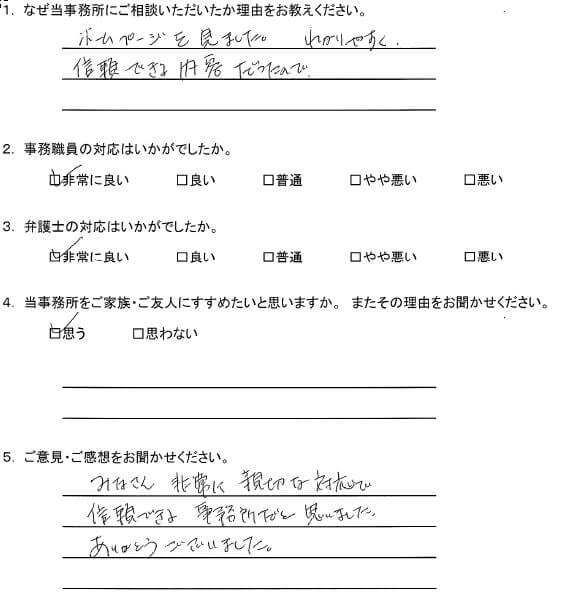 1. なぜ当事務所にご相談いただいたか理由をお教えください。
ホームページを見ました。 わかりやすく、
信頼できる内容だったので。
2. 事務職員の対応はいかがでしたか。
☑非常に良い □良い □普通 □やや悪い □悪い
3. 弁護士の対応はいかがでしたか。
☑非常に良い □良い □普通 □やや悪い □悪い
4. 当事務所をご家族・ご友人にすすめたいと思いますか。 またその理由をお聞かせください。
☑思う □思わない
5. ご意見・ご感想をお聞かせください。
みなさん 非常に 親切な対応で
信頼できる 事務所だと 思いました。
ありがとうございました。